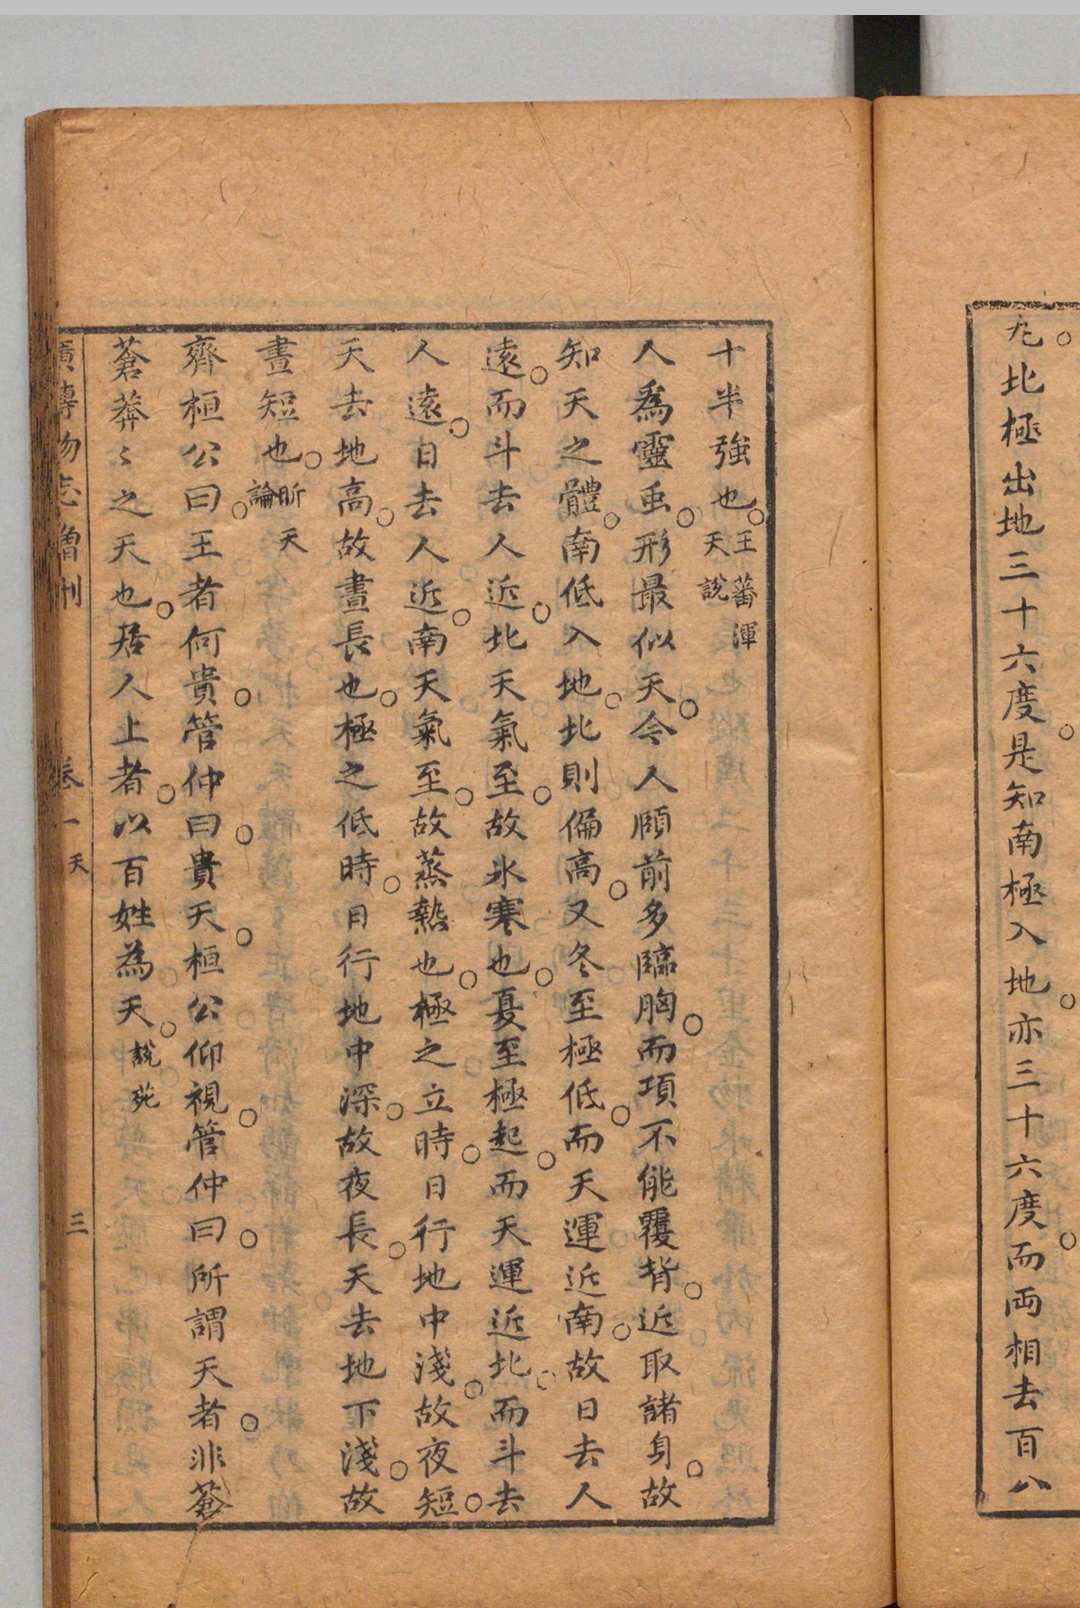 九北極出地三十六度是知南極入地亦三十六度而両相去百八
十半強也王蕃渾天説
人爲靈虫形最似天令人頎前多臨胸而項不能覆背近取諸身故
知天之體南低入地北則偏高又冬至極低而天運近南故日去人
遠而斗去人近北天氣至故氷寒也夏至極起而天運近北而斗去
人遠日去人近南天氣至故蒸熱也極之立時日行地中淺故夜短
天去地高故晝長也極之低時日行地中深故夜長天去地下淺故
晝短也昕天論
齊桓公曰王者何貴管仲曰貴天桓公仰視管仲曰所謂天者非蒼
蒼莽〻之天也居人上者以百姓為天說苑
廣博物志曾刊 卷一 天 三